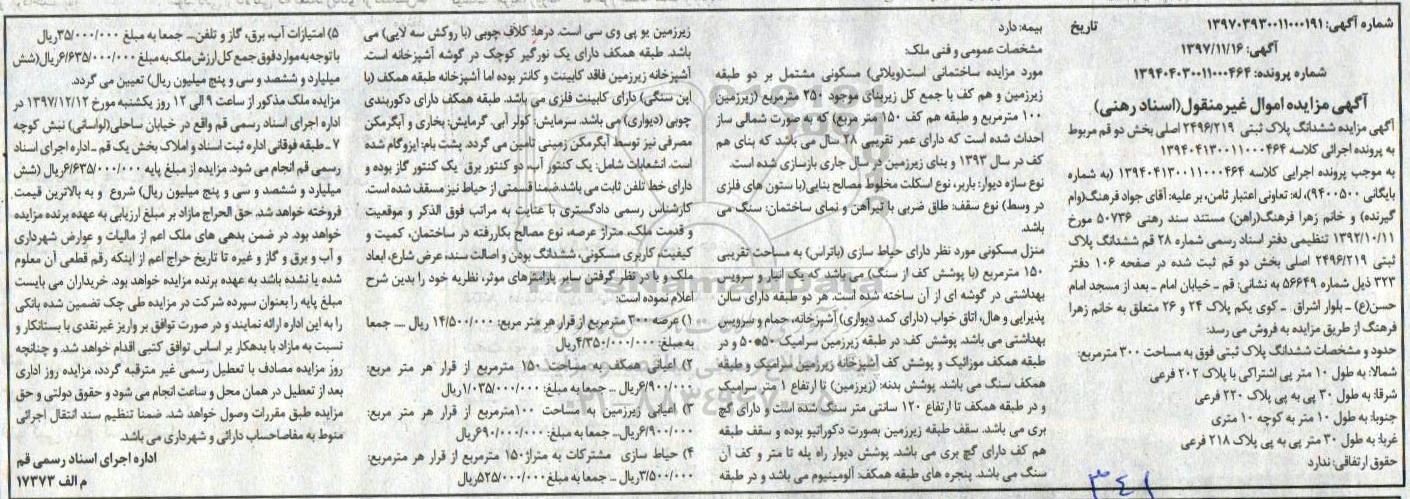 شماره آگهی: ۱۳۹۷۰۳۹۳۰۰۱۱۰۰۰۱۹۱ تاریخ
آگهی: ۱۳۹۷/۱۱/۱۶
شماره پرونده: ۱۳۹۴۰۴۰۳۰۰۱۱۰۰۰۴۶۴
آگهی مزایده اموال غیرمنقول(اسناد رهنی)
آگهی مزایده ششدانگ پلاک ثبتی ۲۴۹۶/۲۱۹ اصلی بخش دو قم مربوط
به پرونده اجرائی کلاسه ۱۳۹۴۰۴۱۳۰۰۱۱۰۰۰۴۶۴
به موجب پرونده اجرایی کلاسه ۱۳۹۴۰۴۱۳۰۰۱۱۰۰۰۴۶۴ (به شماره
بایگانی ۹۴۰۰۵۰۰)، له: تعاونی اعتبار ثامن، بر علیه: آقای جواد فرهنگ(وام
گیرنده) و خانم زهرا فرهنگ(راهن) مستند سند رهنی ۵۰۷۳۶ مورخ
۱۳۹۲/۱۰/۱۱ تنظیمی دفتر اسناد رسمی شماره ۲۸ قم ششدانگ پلاک
ثبتی ۲۴۹۶/۲۱۹ اصلی بخش دو قم ثبت شده در صفحه ۱۰۶ دفتر
۳۲۳ ذیل شماره ۵۶۶۴۹ به نشانی: قم - خیابان امام - بعد از مسجد امام
حسن(ع) - بلوار اشراق - کوی یکم پلاک ۲۴ و ۲۶ متعلق به خانم زهرا
فرهنگ از طریق مزایده به فروش می رسد:
حدود و مشخصات ششدانگ پلاک ثبتی فوق به مساحت ۳۰۰ مترمربع:
شمالا: به طول ۱۰ متر پی اشتراکی با پلاک ۲۰۲ فرعی
شرقا: به طول ۳۰ پی به پی پلاک ۲۲۰ فرعی
جنوبا: به طول ۱۰ متر به کوچه ۱۰ متری
غربا: به طول ۳۰ متر پی به پی پلاک ۲۱۸ فرعی
حقوق ارتفاقی: ندارد
بیمه: دارد
مشخصات عمومی و فنی ملک:
مورد مزایده ساختمانی است(ویلائی) مسکونی مشتمل بر دو طبقه
زیرزمین و هم کف با جمع کل زیربنای موجود ۲۵۰ مترمربع (زیرزمین
۱۰۰ مترمربع و طبقه هم کف ۱۵۰ متر مربع) که به صورت شمالی ساز
احداث شده است که دارای عمر تقریبی ۲۸ سال می باشد که بنای هم
کف در سال ۱۳۹۳ و بنای زیرزمین در سال جاری بازسازی شده است.
نوع سازه دیوار: باربر، نوع اسکلت مخلوط مصالح بنایی(با ستون های فلزی
در وسط) نوع سقف: طاق ضربی با تیرآهن و نمای ساختمان: سنگ می
باشد.
منزل مسکونی مورد نظر دارای حیاط سازی (باتراس) به مساحت تقریبی
۱۵۰ مترمربع (با پوشش کف از سنگ) می باشد که یک انبار و سرویس
بهداشتی در گوشه ای از آن ساخته شده است. هر دو طبقه دارای سالن
پذیرایی و هال، اتاق خواب (دارای کمد دیواری) آشپزخانه، حمام و سرویس
بهداشتی می باشد. پوشش کف: در طبقه زیرزمین سرامیک ۵۰*۵۰ و در
طبقه همکف موزائیک و پوشش کف آشپزخانه زیرزمین سرامیک و طبقه
همکف سنگ می باشد. پوشش بدنه: (زیرزمین) تا ارتفاع ۱ متر سرامیک
و در طبقه همکف تا ارتفاع ۱۲۰ سانتی متر سنگ شده است و دارای گچ
بری می باشد. سقف طبقه زیرزمین بصورت دکوراتیو بوده و سقف طبقه
هم کف دارای گچ بری می باشد. پوشش دیوار راه پله تا متر و کف آن
سنگ می باشد. پنجره های طبقه همکف: آلومینیوم می باشد و در طبقه
زیرزمین یو پی وی سی است. درها: کلاف چوبی (با روکش سه لایی) می
باشد. طبقه همکف دارای یک نورگیر کوچک در گوشه آشپزخانه است.
آشپزخانه زیرزمین فاقد کابینت و کانتر بوده اما آشپزخانه طبقه همکف (با
اپن سنگی) دارای کابینت فلزی می باشد. طبقه همکف دارای دکوربندی
چوبی (دیواری) می باشد. سرمایش: کولر آبی. گرمایش: بخاری و آبگرمکن
مصرفی نیز توسط آبگرمکن زمینی تامین می گردد. پشت بام: ایزوگام شده
است. انشعابات شامل: یک کنتور آب دو کنتور برق یک کنتور گاز بوده و
دارای خط تلفن ثابت می باشد.ضمنا قسمتی از حیاط نیز مسقف شده است.
کارشناس رسمی دادگستری با عنایت به مراتب فوق الذکر و موقعیت
و قدمت ملک، متراژ عرصه، نوع مصالح بکاررفته در ساختمان، کمیت و
کیفیت، کاربری مسکونی، ششدانگ بودن و اصالت سند، عرض شارع، ابعاد
ملک و با در نظر گرفتن سایر پارامترهای موثر، نظریه خود را بدین شرح
اعلام نموده است:
۱) عرصه ۳۰۰ مترمربع از قرار هر متر مربع: ۱۴/۵۰۰/۰۰۰ ریال ... جمعا
به مبلغ: ۴/۳۵۰/۰۰۰/۰۰۰ریال
۲) اعیانی همکف به مساحت ۱۵۰ مترمربع از قرار هر متر مربع:
۶/۹۰۰/۰۰۰ریال ... جمعا به مبلغ: ۱/۰۳۵/۰۰۰/۰۰۰ریال
۳) اعیانی زیرزمین به مساحت ۱۰۰مترمربع از قرار هر متر مربع:
۶/۹۰۰/۰۰۰ریال... جمعا به مبلغ: ۶۹۰/۰۰۰/۰۰۰ریال
۴) حیاط سازی مشترکات به متراژ۱۵۰ مترمربع از قرار هر مترمربع:
۳/۵۰۰/۰۰۰ریال ... جمعا به مبلغ:۵۲۵/۰۰۰/۰۰۰ریال
۵) امتیازات آب، برق، گاز و تلفن... جمعا به مبلغ ۳۵/۰۰۰/۰۰۰ریال
با توجه به موارد فوق جمع کل ارزش ملک به مبلغ ۶/۶۳۵/۰۰۰/۰۰۰ریال(شش
میلیارد و ششصد و سی و پنج میلیون ریال) تعیین می گردد.
مزایده ملک مذکور از ساعت ۹ الی ۱۲ روز یکشنبه مورخ ۱۳۹۷/۱۲/۱۲ در
اداره اجرای اسناد رسمی قم واقع در خیابان ساحلی(لواسانی) نبش کوچه
۷ - طبقه فوقانی اداره ثبت اسناد و املاک بخش یک قم - اداره اجرای اسناد
رسمی قم انجام می شود. مزایده از مبلغ پایه ۶/۶۳۵/۰۰۰/۰۰۰ریال (شش
میلیارد و ششصد و سی و پنج میلیون ریال) شروع و به بالاترین قیمت
فروخته خواهد شد. حق الحراج مازاد بر مبلغ ارزیابی به عهده برنده مزایده
خواهد بود. در ضمن بدهی های ملک اعم از مالیات و عوارض شهرداری
و آب و برق و گاز و غیره تا تاریخ حراج اعم از اینکه رقم قطعی آن معلوم
شده یا نشده باشد به عهده برنده مزایده خواهد بود. خریداران می بایست
مبلغ پایه را بعنوان سپرده شرکت در مزایده طی چک تضمین شده بانکی
را به این اداره ارائه نمایند و در صورت توافق بر واریز غیرنقدی با بستانکار و
نسبت به مازاد با بدهکار بر اساس توافق کتبی اقدام خواهد شد. و چنانچه
روز مزایده مصادف با تعطیل رسمی غیر مترقبه گردد، مزایده روز اداری
بعد از تعطیل در همان محل و ساعت انجام می شود و حقوق دولتی و حق
مزایده طبق مقررات وصول خواهد شد. ضمنا تنظیم سند انتقال اجرائی
منوط به مفاصاحساب دارائی و شهرداری می باشد.
اداره اجرای اسناد رسمی قم
م الف ۱۷۳۷۳
۳۴۱
ParsNamadData